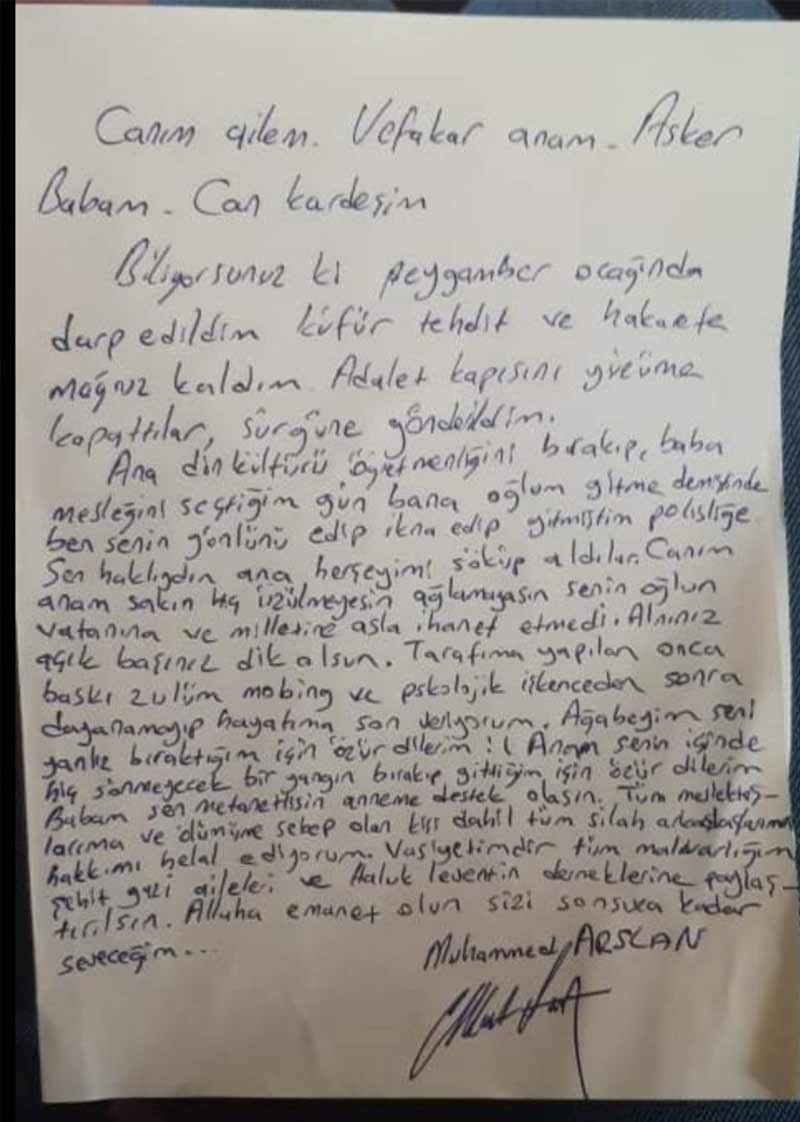 Canım ailem. Vefakar anam. Asker
Babam. Can kardeşim
Biliyorsunuz ki peygamber ocağında
darp edildim küfür tehdit ve hakarete
mağruz kaldım. Adalet kapısını yüzüme
kapattılar, sürgüne gönderildim.
Ana din kültürü öğretmenliğini bırakıp, baba
mesleğini seçtiğim gün bana oğlum gitme demiştinde
ben senin gönlünü edip ikna edip gitmiştim polisliğe
Sen haklıydın ana, herşeyimi söküp aldılar. Canım
anam sakın hiç üzülmeyesin ağlamayasın senin oğlun
vatanına ve milletine asla ihanet etmedi. Alnınız
açık başınız dik olsun. Tarafıma yapılan onca
baskı zulüm mobing ve pskolojik işkenceden sonra
dayanamayıp hayatıma son veriyorum. Ağabeyim seni
yanlız bıraktığım için özür dilerim!! Anam senin içinde
hiç sönmeyecek bir yangın bırakıp gittiğim için özür dilerim
Babam sen metanetlisin anneme destek olasın. Tüm meslektaş-
larıma ve ölümüme sebep olan kişi dahil tüm silah arkadaşlarıma
hakkımı helal ediyorum. Vasiyetimdir tüm malvarlığım
şehit gazi aileleri ve Haluk leventin derneklerine paylaş-
tırılsın. Allaha emanet olun sizi sonsuza kadar
seveceğim...
Muhammed ARSLAN